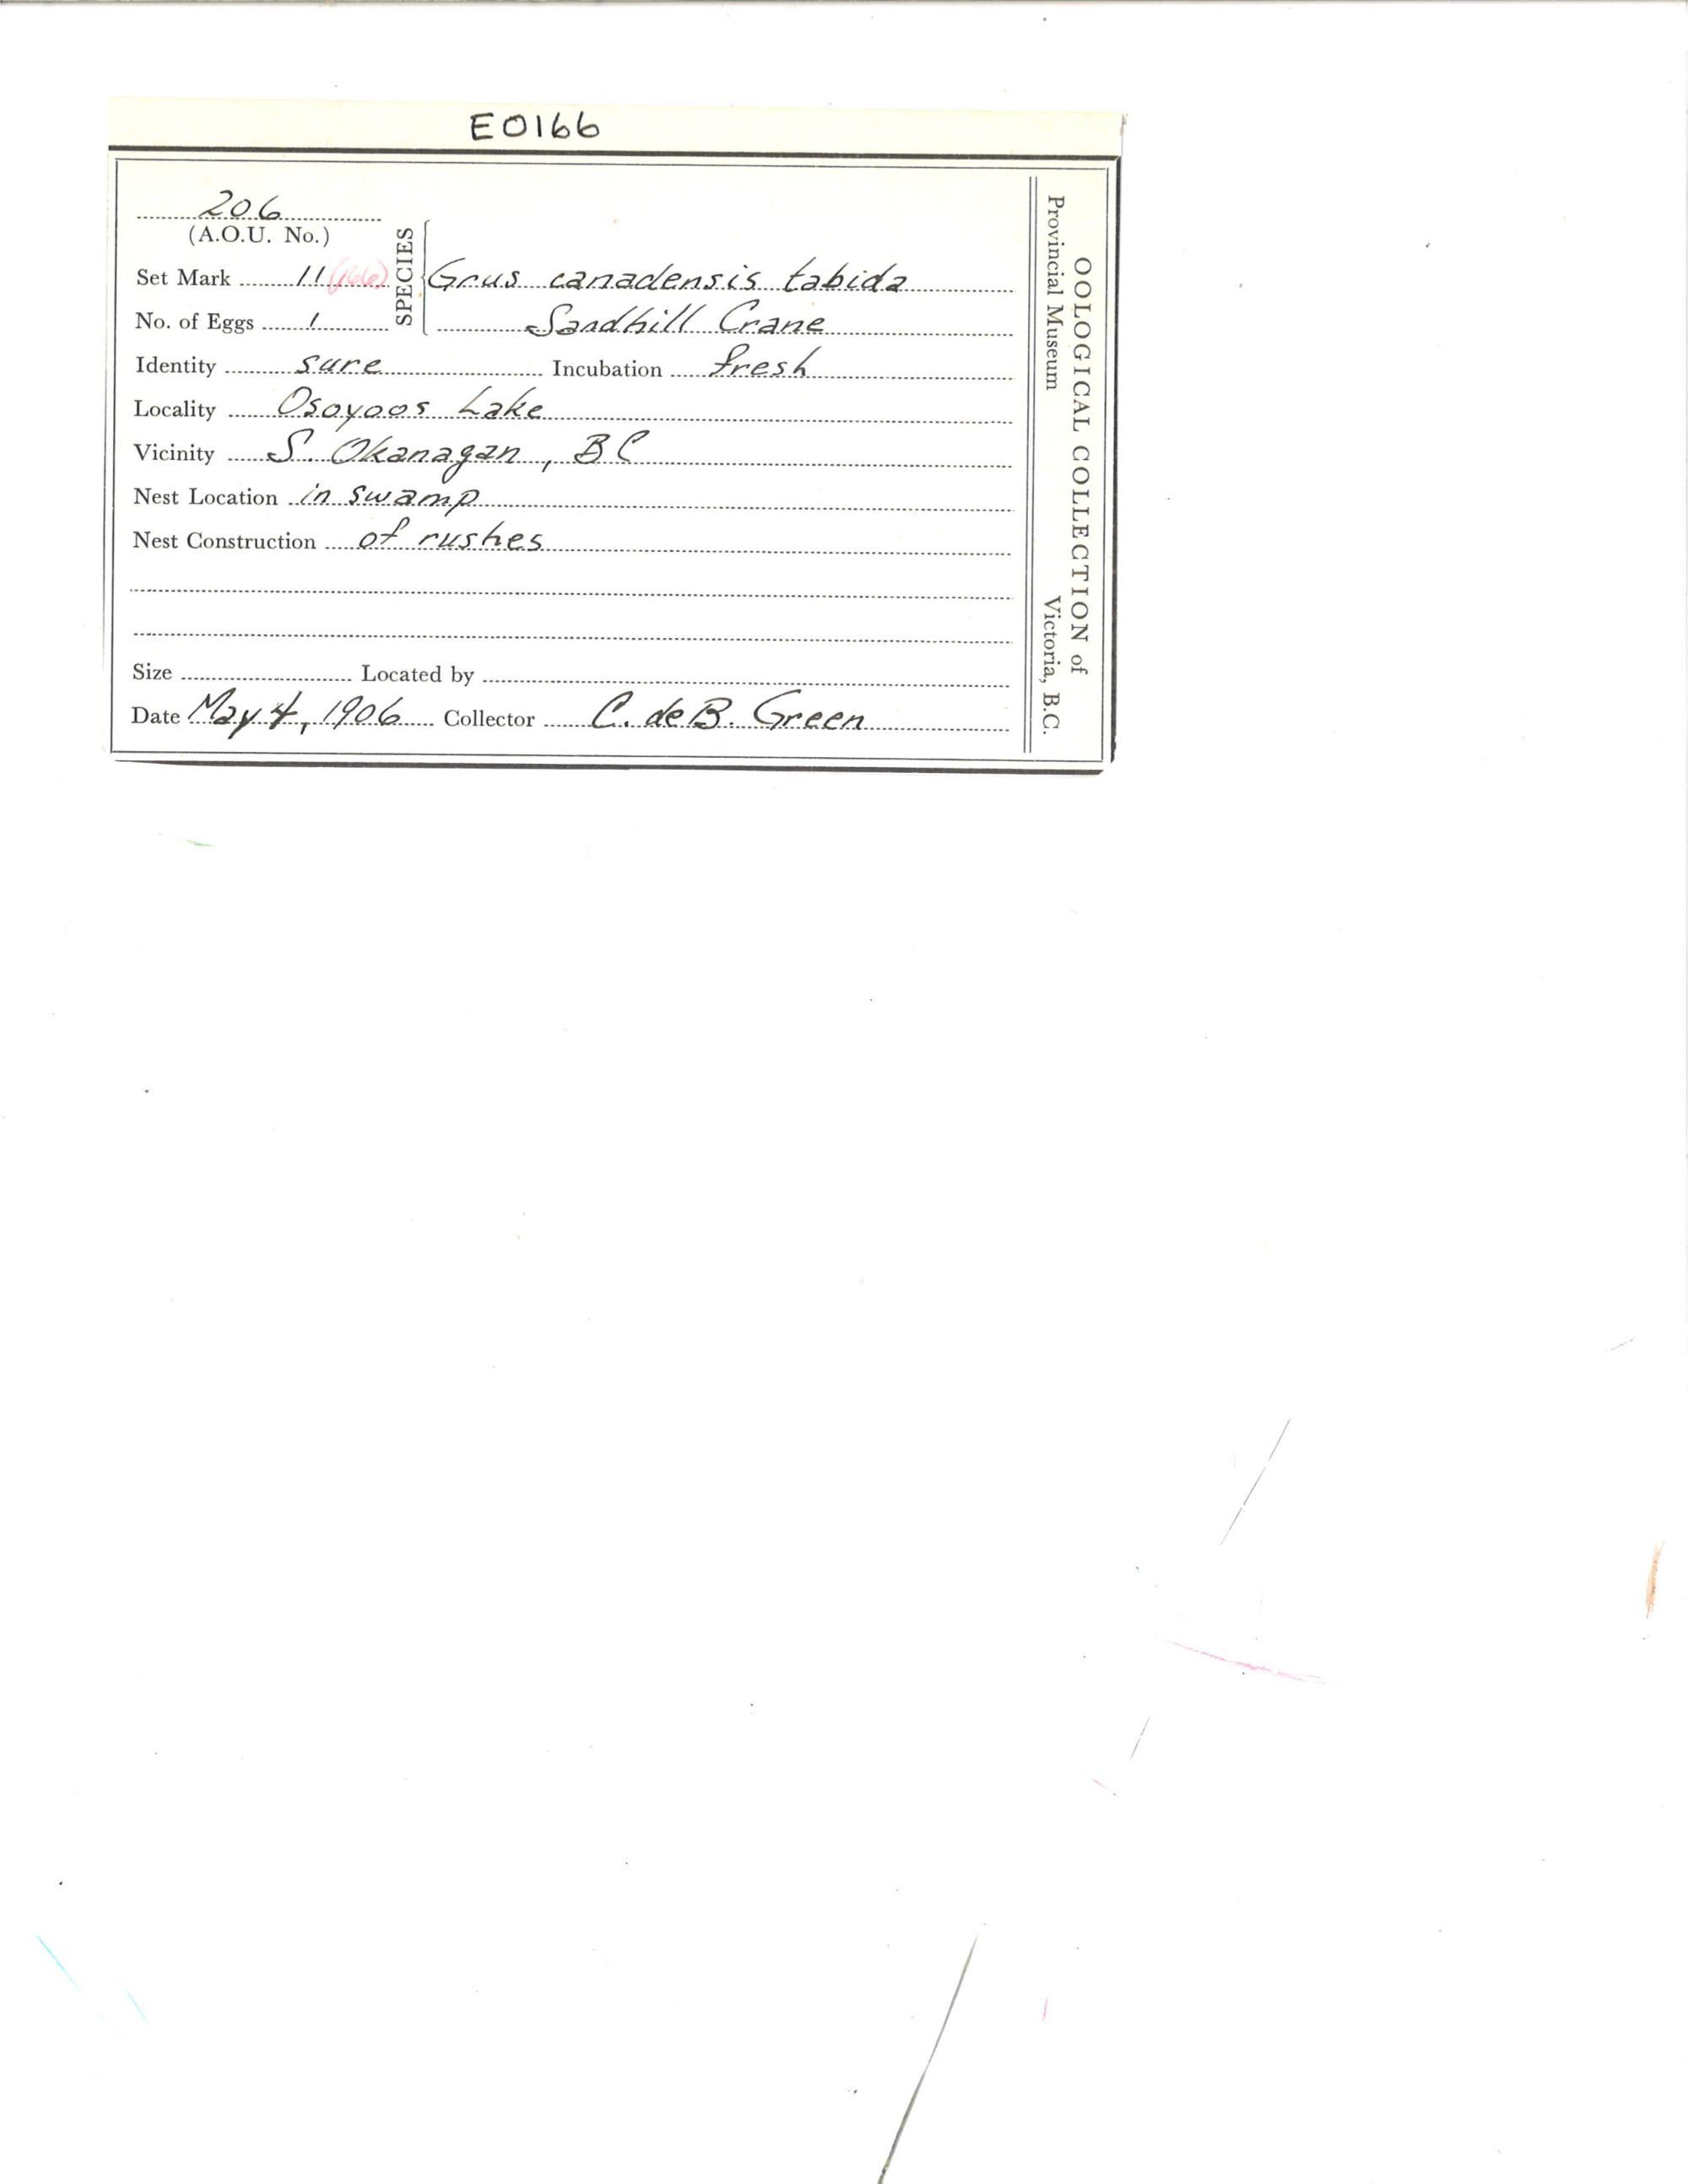 E0166
206
(A.O.U. No.)
Set Mark 11 (166)
No. of Eggs 1
SPECIES
Grus canadensis tabida
Sandhill Crane
Identity sure Incubation fresh
Locality Osoyoos Lake
Vicinity S. Okanagan, BC
Nest Location in swamp
Nest Construction of rushes
Size Located by
Date May 4, 1906 Collector C. deB. Green
OOLOGICAL COLLECTION of
Provincial Museum Victoria, B.C.